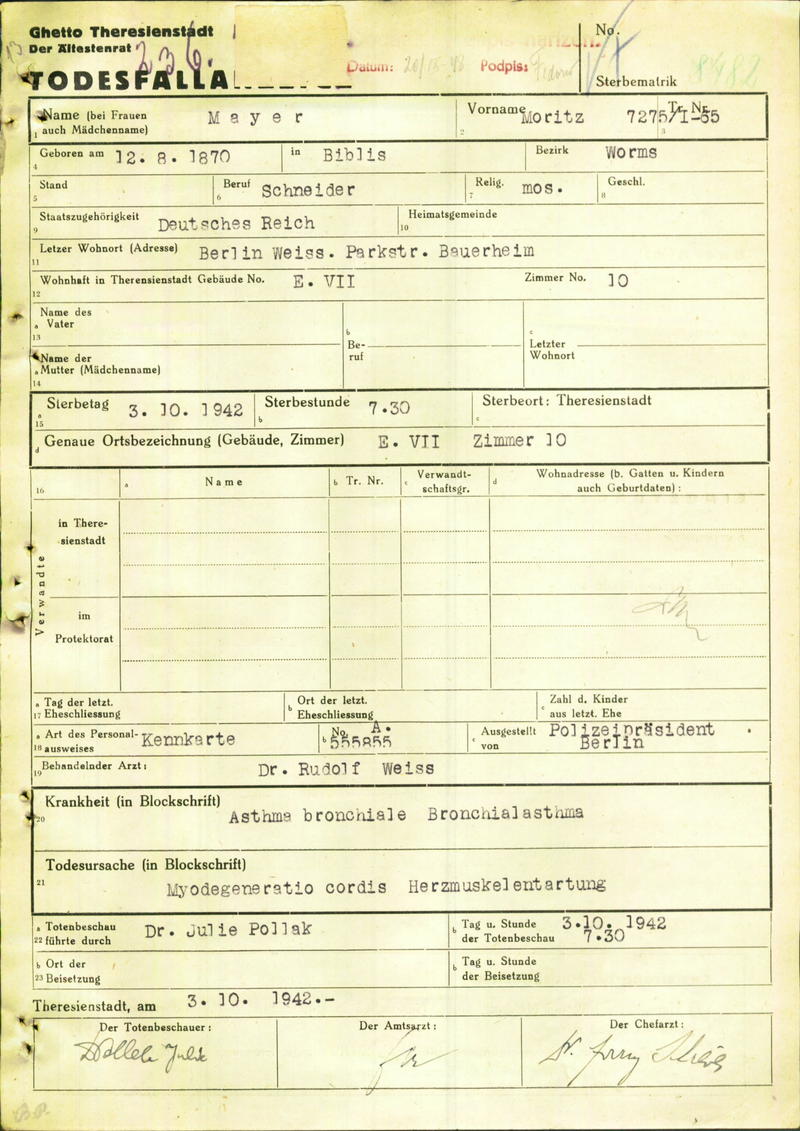 Ghetto Theresienstadt
Der Ältestenrat
TODESFALLA
Datum: Podpis:
No.
Sterbematrik
8482
Name (bei Frauen auch Mädchenname) Mayer
1
Vorname Moritz
2
Tr. Nr. 7275/I-55
3
Geboren am 12. 8. 1870 in Biblis Bezirk Worms
4
Stand Beruf Schneider Relig. mos. Geschl.
5 6 7 8
Staatszugehörigkeit Deutsches Reich Heimatsgemeinde
9 10
Letzer Wohnort (Adresse) Berlin Weiss. Parkstr. Bauerheim
11
Wohnhaft in Theresienstadt Gebäude No. E. VII Zimmer No. 10
12
Name des
a Vater
13
b
Beruf
c
Letzter
Wohnort
Name der
a Mutter (Mädchenname)
14
Sterbetag 3. 10. 1942 Sterbestunde 7.30 Sterbeort: Theresienstadt
a b c
15
d Genaue Ortsbezeichnung (Gebäude, Zimmer) E. VII Zimmer 10
16
a Name b Tr. Nr. c Verwandt-
schaftsgr. d Wohnadresse (b. Gatten u. Kindern
auch Geburtdaten) :
Verwandte
in There-
sienstadt
im
Protektorat
a Tag der letzt.
17 Eheschliessung
b Ort der letzt.
Eheschliessung
c Zahl d. Kinder
aus letzt. Ehe
a Art des Personal-
18 ausweises Kennkarte
b No. A.
555855
c Ausgestellt
von Polizeipräsident
Berlin
Behandelnder Arzt: Dr. Rudolf Weiss
19
Krankheit (in Blockschrift)
20 Asthma bronchiale Bronchialasthma
Todesursache (in Blockschrift)
21 Myodegeneratio cordis Herzmuskelentartung
a Totenbeschau
22 führte durch Dr. Julie Pollak
b Tag u. Stunde
der Totenbeschau 3.10. 1942
7.30
b Ort der
23 Beisetzung
b Tag u. Stunde
der Beisetzung
Theresienstadt, am 3. 10. 1942.-
Der Totenbeschauer: Der Amtsarzt: Der Chefarzt: